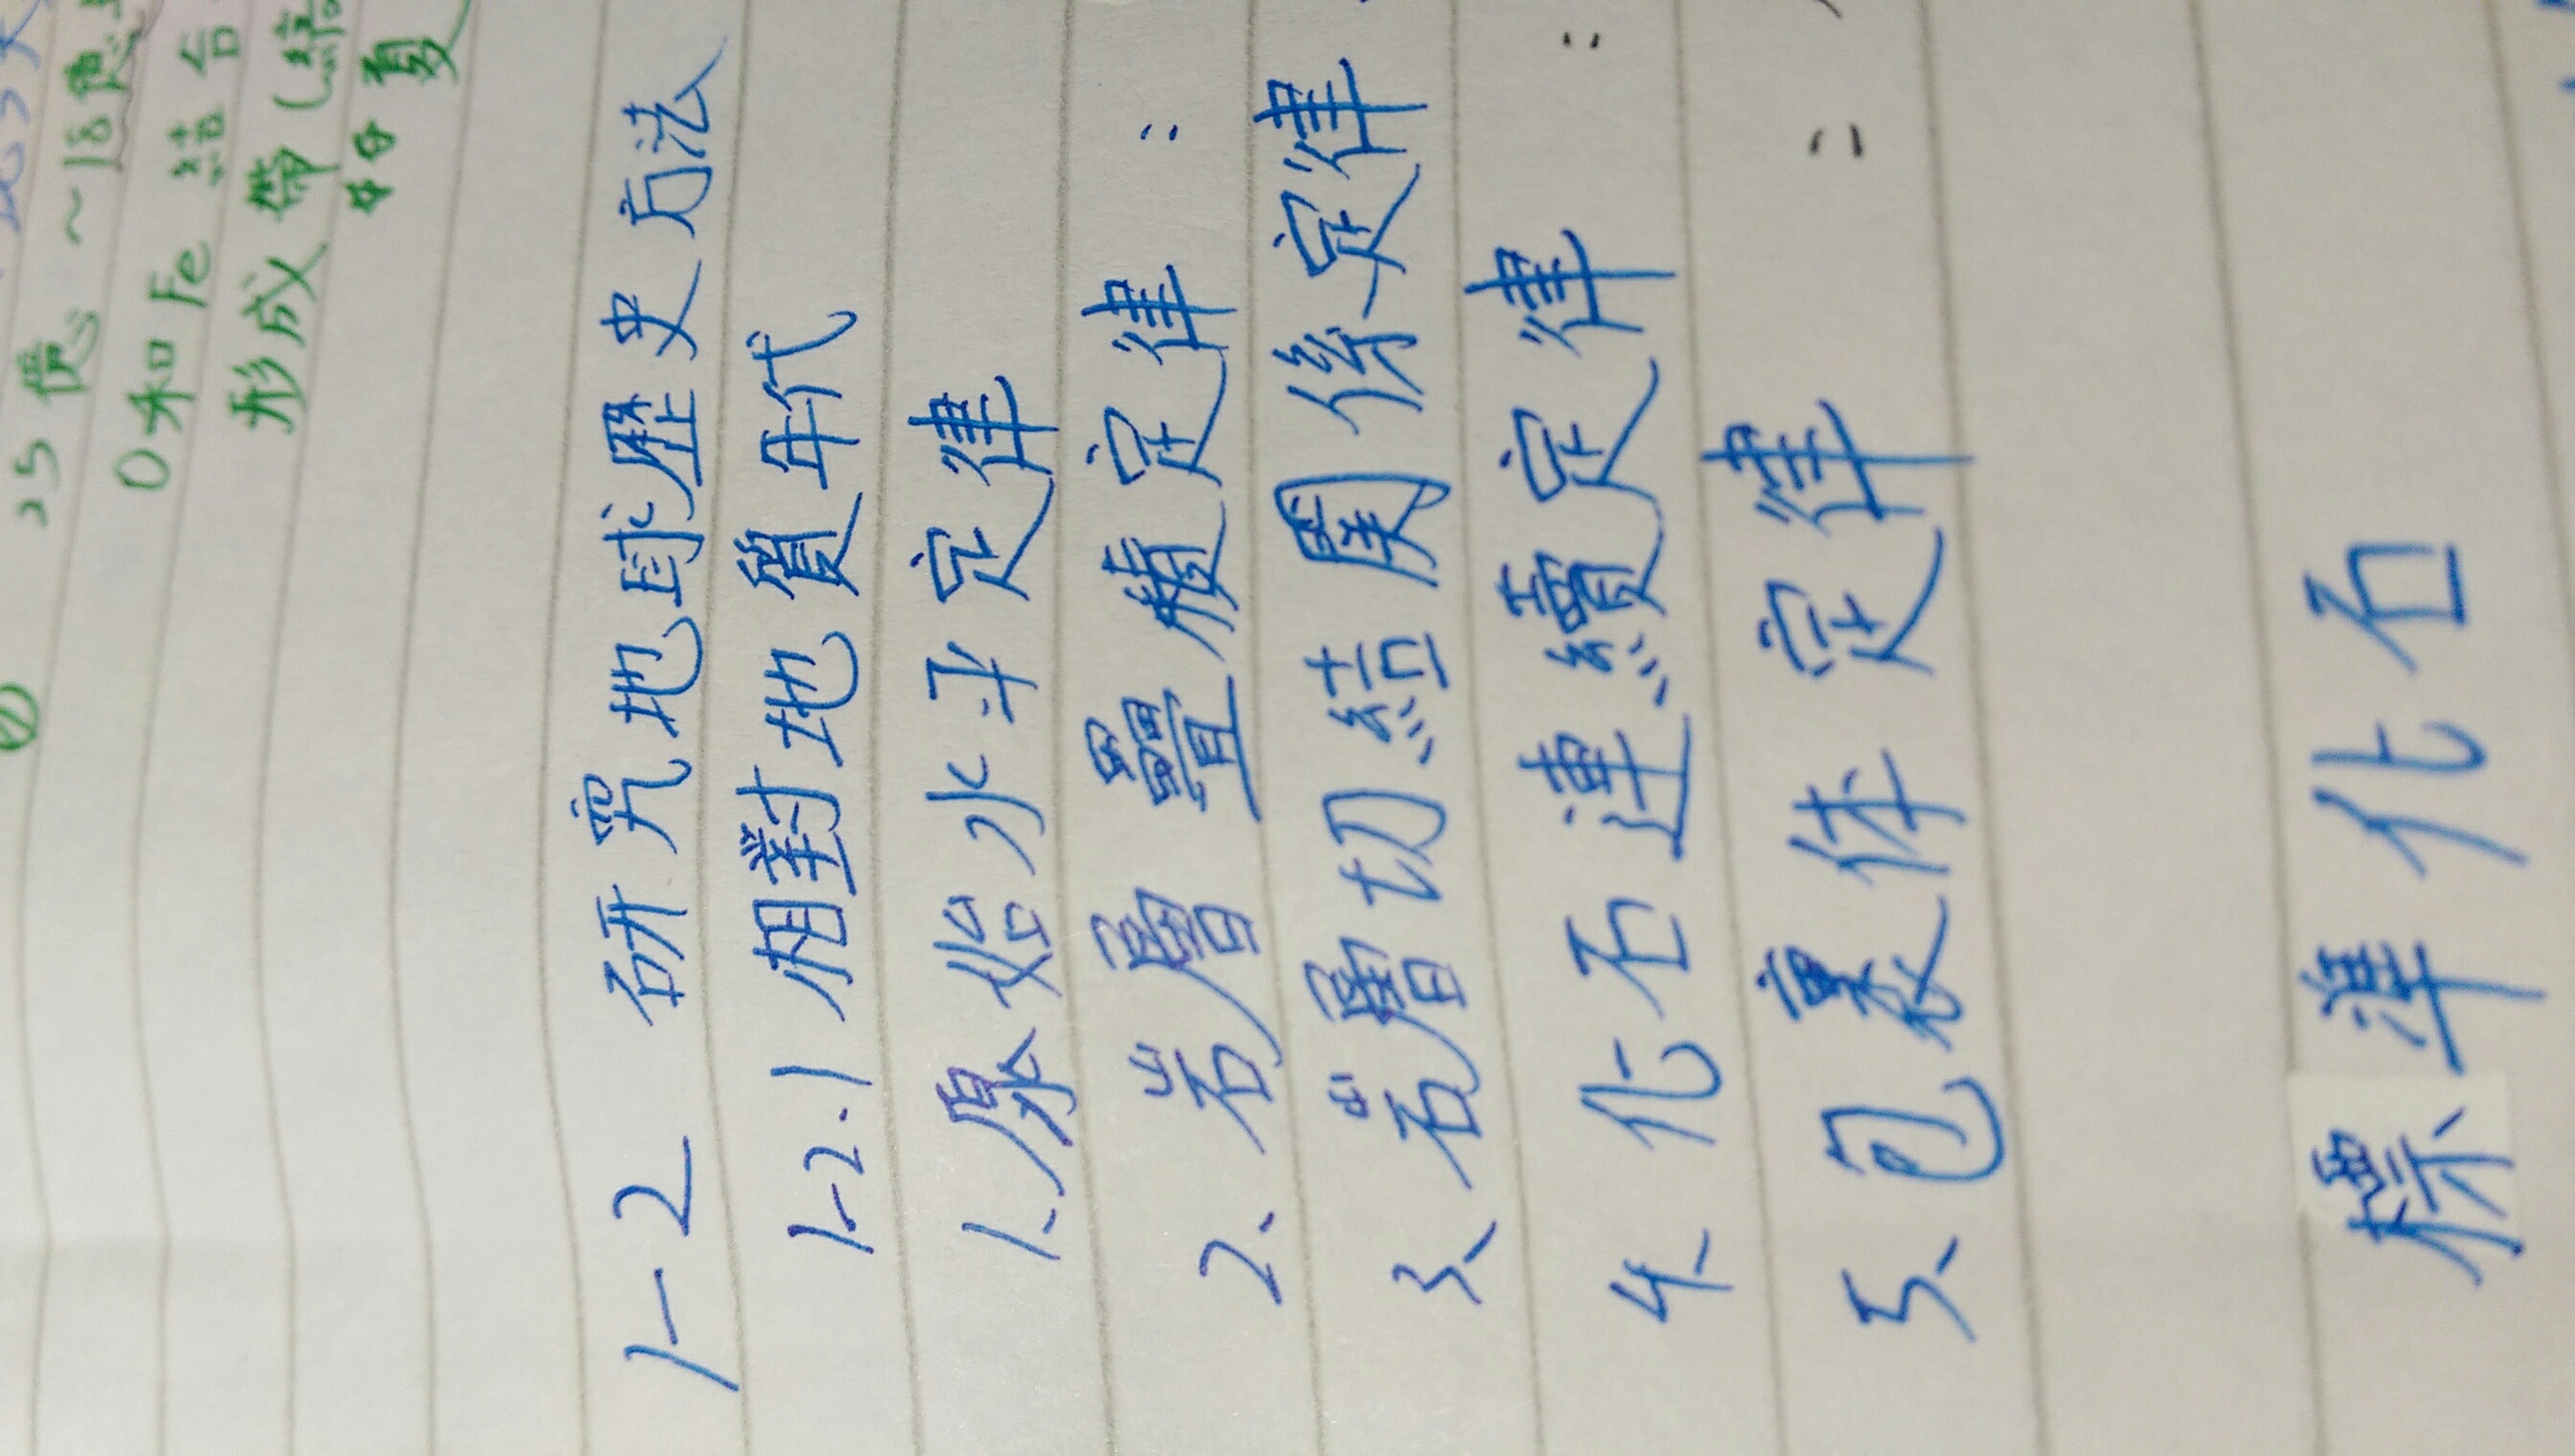 25億~18億
O和Fe結合
形成 帶(縞
1-2 研究地球歷史方法
1-2.1 相對地質年代
1、原始水平定律
2、岩層疊積定律:
3、岩層切結関係定律
4、化石連續定律:
5、包裹体定律:
標準化石